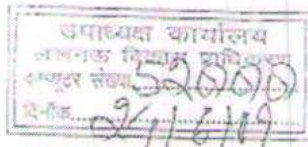 उपाध्यक्ष कार्यालय
लखनऊ विकास प्राधिकरण
कम्प्यूटर संख्या 52000
दिनाँक